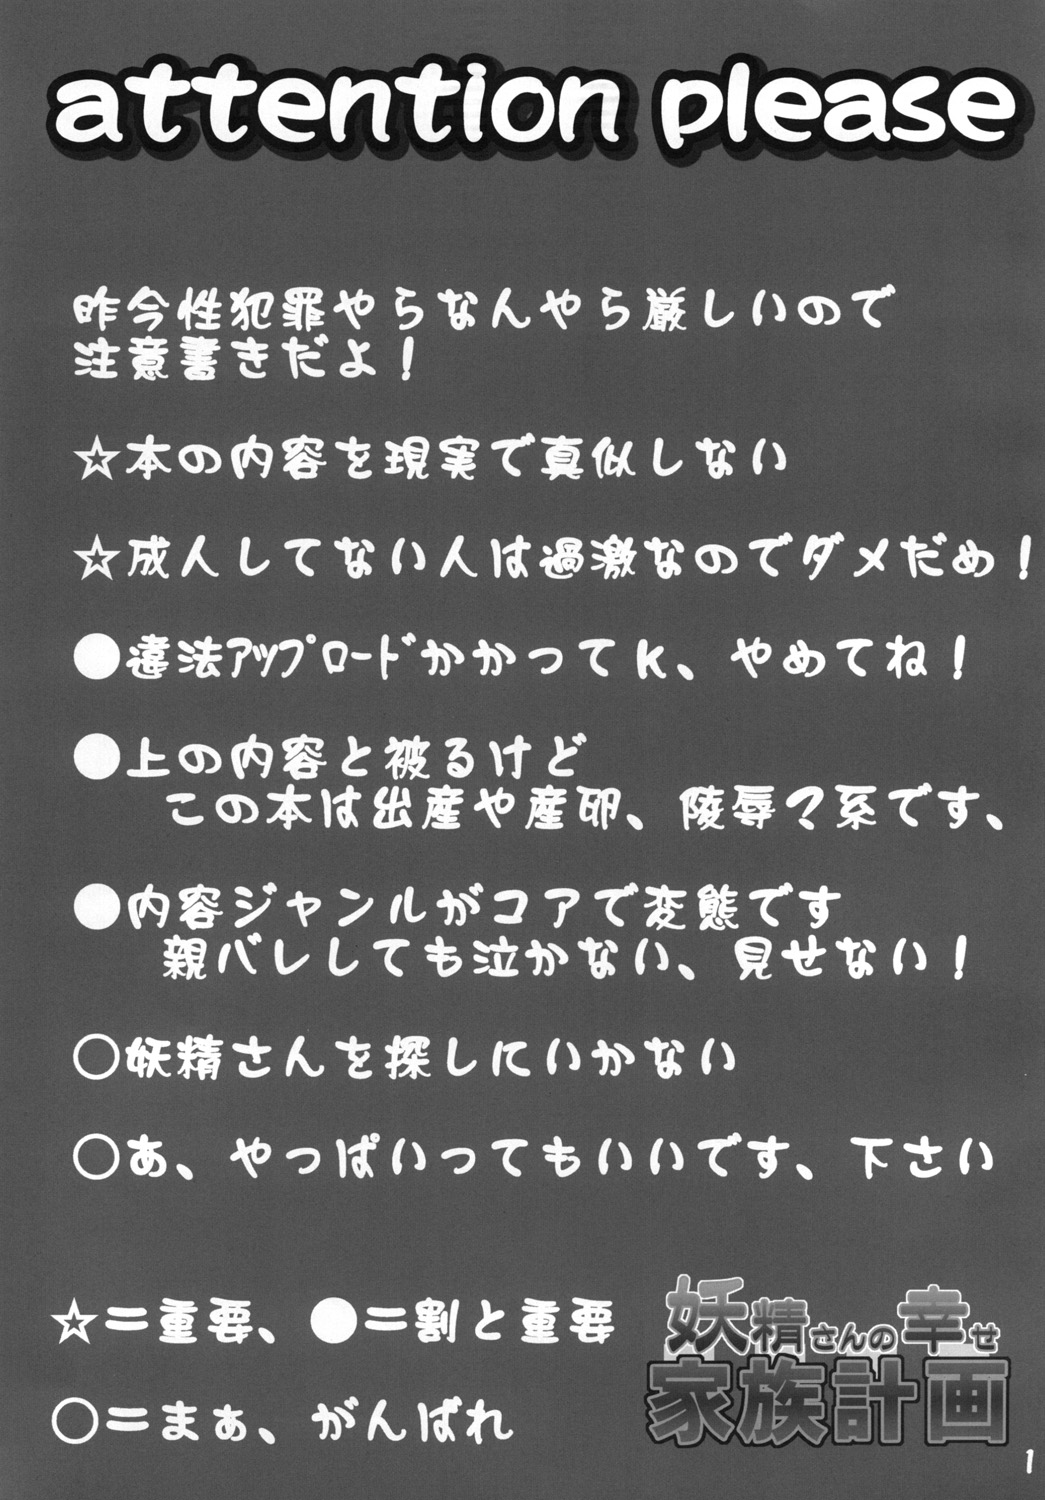 attention please
昨今性犯罪やらなんやら厳しいので
注意書きだよ！
☆本の内容を現実で真似しない
☆成人してない人は過激なのでダメだめ！
●違法ｱｯﾌﾟﾛｰﾄﾞかかってｋ、やめてね！
●上の内容と被るけど
この本は出産や産卵、陵辱？系です、
●内容ジャンルがコアで変態です
親バレしても泣かない、見せない！
○妖精さんを探しにいかない
○あ、やっぱいってもいいです、下さい
☆＝重要、●＝割と重要
○＝まぁ、がんばれ
妖精さんの幸せ
家族計画
1